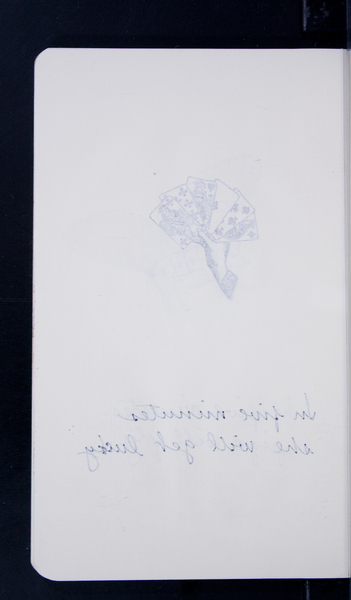 In five minutes
she will get lucky